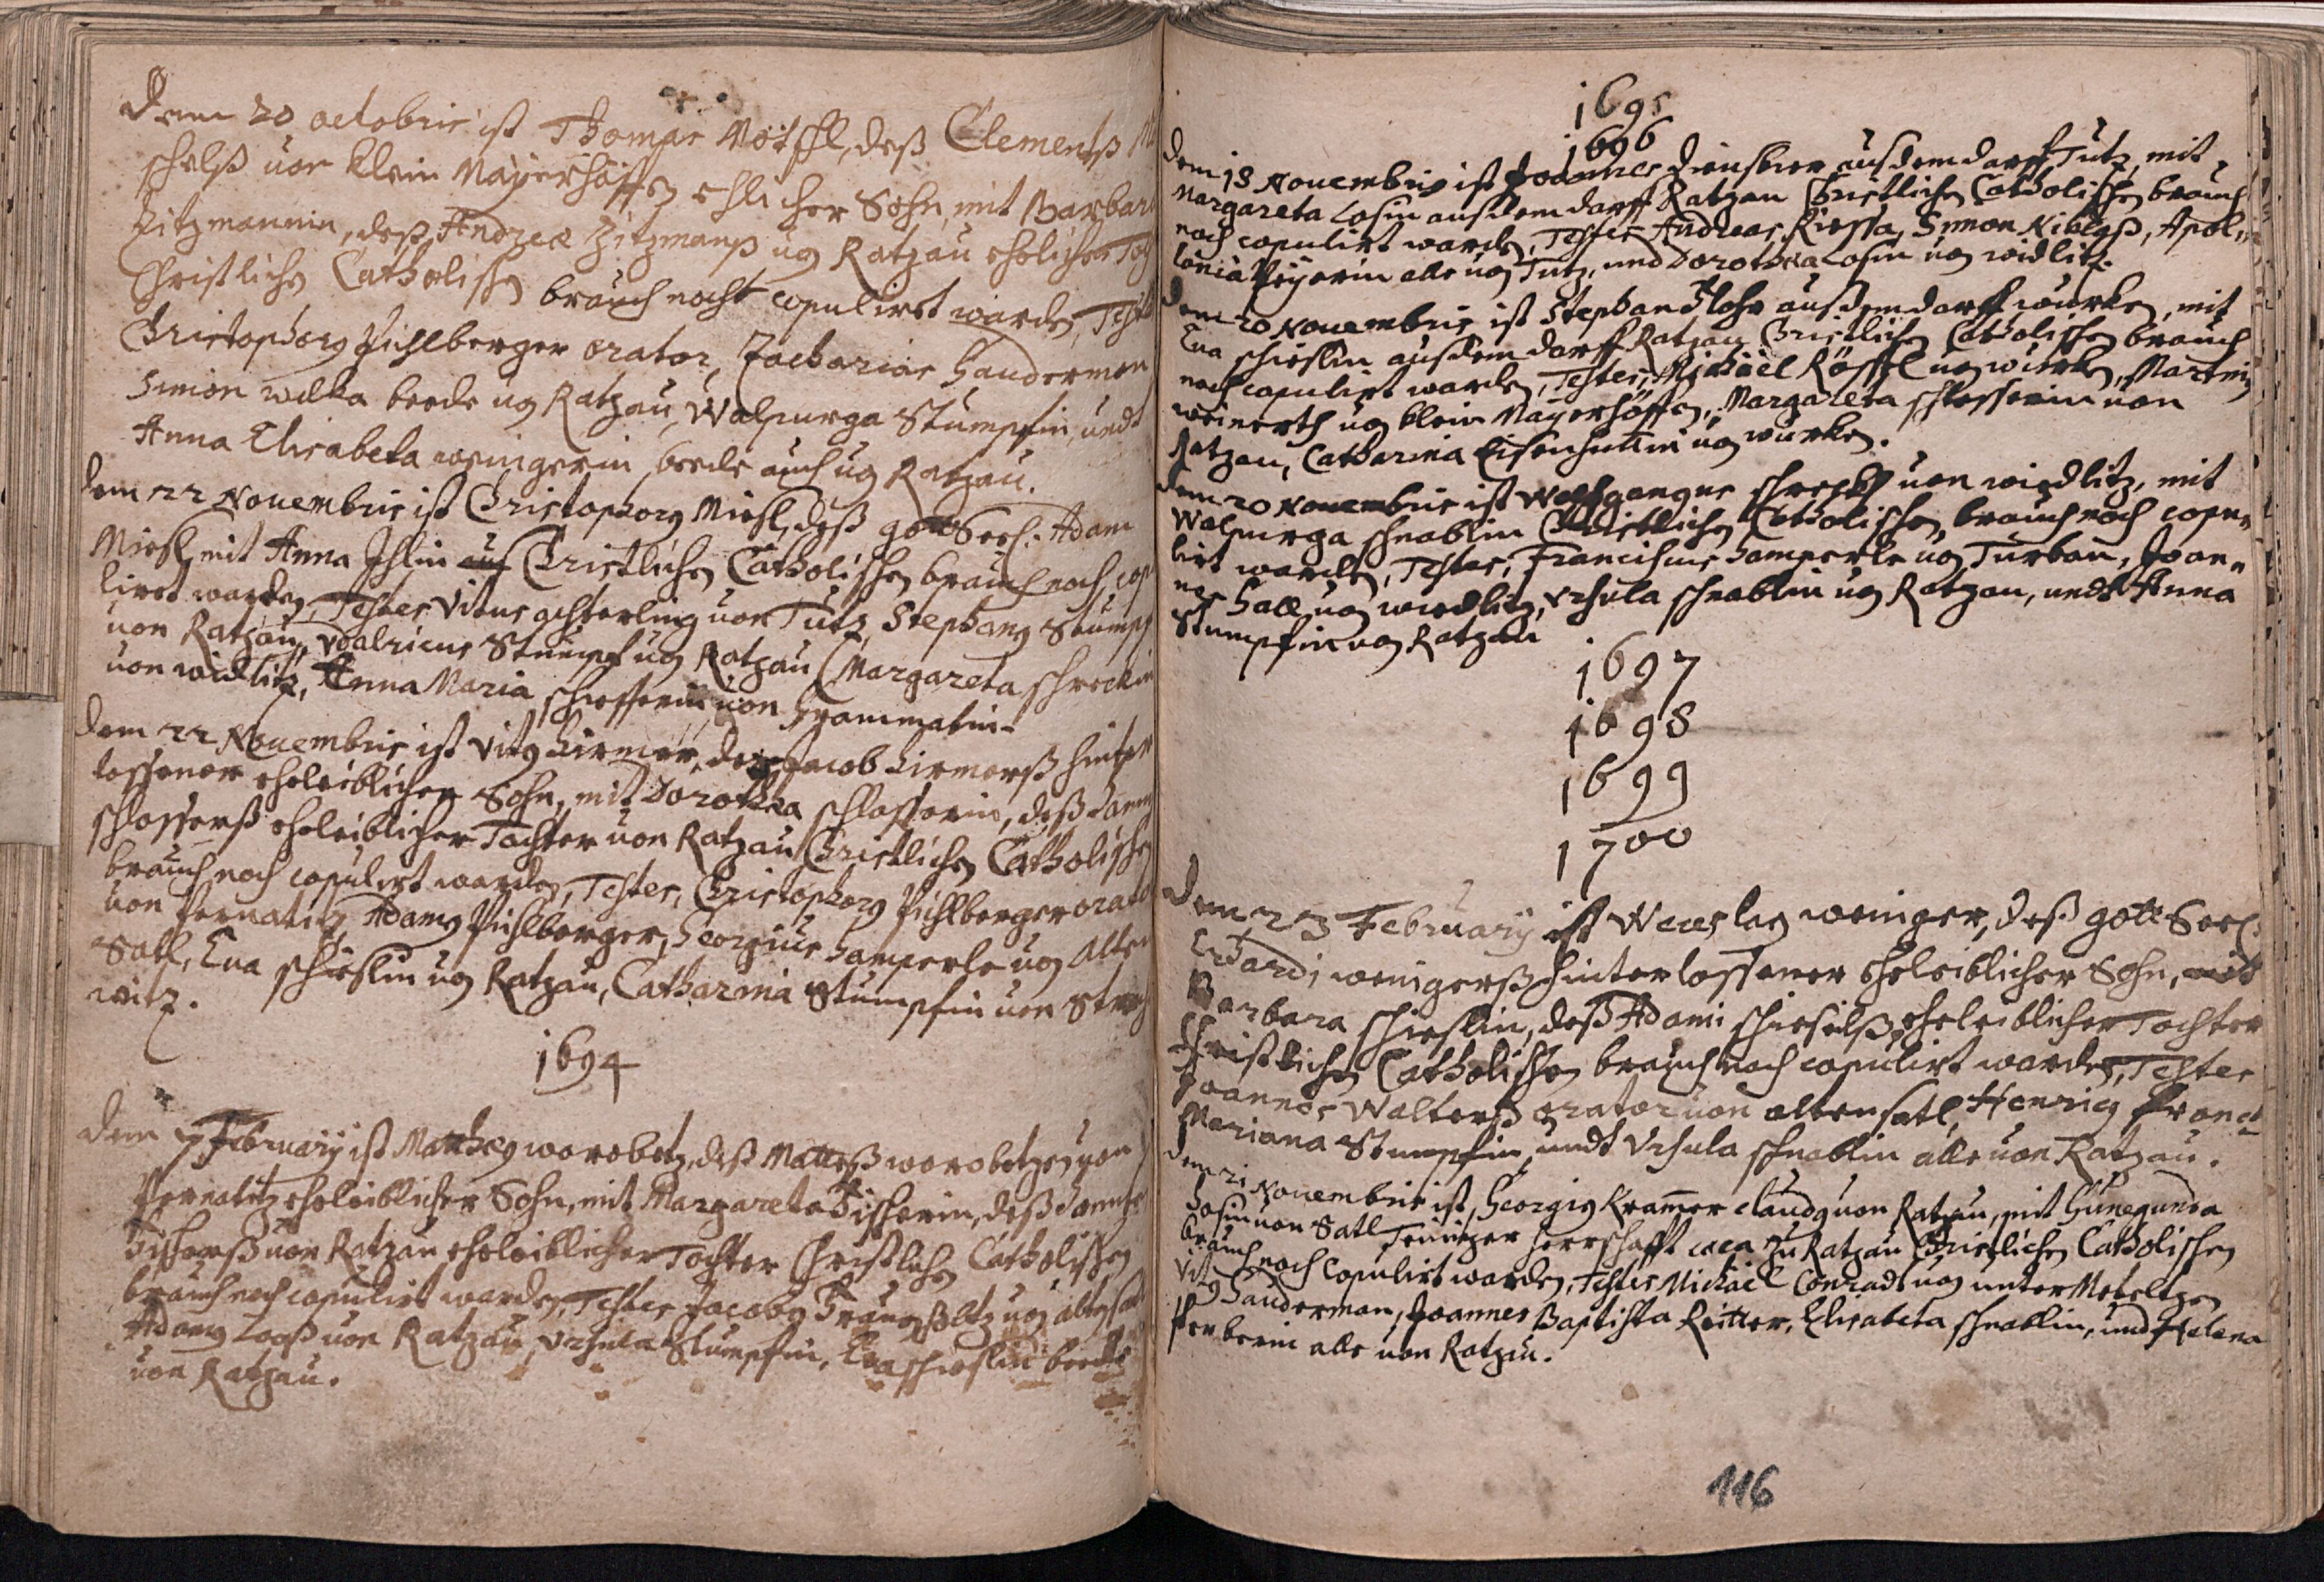 Dem 20 octobris ist Thomas Mötschl, deß Clementß
schelß von klein Mayerhöffen ehlicher Sohn, mit Barbara
Zitzmannin, deß Andreæ Zitzmanß vo Ratzau ehelicher
Christlichen Catholischen brauch nacht copuliret warden, Testes
Christophorg Pichlberger orator, Zacharias Handerman
Simon wilka beede vo Ratzau, Walpurga Stumpfin, undt
Anna Elisabeta weinigerin, beede auch vo Ratzau.
Dem 22 Novembris ist Christophorg Miesl, deß gott Seel. Adam
Miesl, mit Anna Ihlin Christlichen Catholischen brauch nach cop
liret warden, Testes Vitus achterling von Tutz, Stephang Stumpf
von Ratzau, Vdalricus Stumpf vo Ratzau Margareta schreckin
von widlitz, Anna Maria schlosserin von Grammatin.
Dem 22 Novembris ist Vitg Lirmer, deß Jacob Lirmerß hinter
lassener eheleiblicher Sohn, mit Dorothea schlosserin, deß
schlosserß eheleiblicher Tochter von Ratzau Christlichen Catholischen
brauch nach copulirt warden, Testes, Christophorg Pichlberger orator
von Pernatitz, Adamg Pichlberger, Georgius Hamperle vo Alten
Satl, Eva schieslin vo Ratzau, Catharina Stumpfin von
witz.
1694
Dem 7 February ist Mattheg worobetz, deß Matteß worobetzen von
Pernatitz eheleiblicher Sohn, mit Margareta Fischerin, deß
Fischerß von Ratzau eheleiblicher Tochter Christlichen Catholischen
brauch nach copulirt warden, Testes Jacobg vo alten
Adamg Looß von Ratzau, Ursula Stumpfin, Eva schieslin beede
von Ratzau.
1695
1696
Dem 18 Novembris ist Joannes dienstbier auß dem darff Tutz, mit
Margareta Losin auß dem darff Ratzau Christlichen Catholischen brauch
nach copulirt warden, Testes Andreas Riessa, Simon Niklaß, Apol-
lonia Peyerin alle vo Tutz, und Dorothea Losin vo widlitz.
Dem 20 Novembris ist Stephan Flohr auß dem darff wurken, mit
Eva schieslin auß dem darff Ratzau Christlichen Catholischen brauch
nach copulirt warden, Testes, Michäel Rössl vo wurken, Marting
weinerth vo klein Mayerhöffen, Margareta schlosserin von
Ratzau, Catharina Eisenhuttin vo wurken.
Dem 20 Novembris ist Wolfgangus schreckh von wiedlitz, mit
Walpurga schnablin Christlichen Catholischen brauch nach copu-
lirt warden, Testes, Franciscus Hamperle vo Turban, Joan-
nes Hall vo wiedlitz, Ursula schnablin vo Ratzau, undt Anna
Stumpfin vo Ratzau
1697
1698
1699
1700
Dem 23 February ist Wenslag weiniger, deß gott Seel.
Erhardi weinigerß hinterlassener eheleiblicher Sohn, mit
Barbara schieslin, deß Adami schieselß eheleiblicher Tochter
Christlichen Catholischen brauch nach copulirt warden, Testes
Joannes Walterß orator von altensatl, Henricg
Mariana Stumpfin undt Ursula schnablin alle von Ratzau.
Dem 21 Novembris ist, Georgig Kramer claudg von Ratzau, mit Gunegunda
Hosin von Satl Teinitzer herrschafft cæca zu Ratzau Christlichen Catholischen
brauch nach Copulirt warden, Testes Michäel Conradt vo unter Meteltzen
Vitg Hauderman, Joannes Baptista Reitter, Elisabeta schnablin, und Helena
Ferberin alle von Ratzau.
116